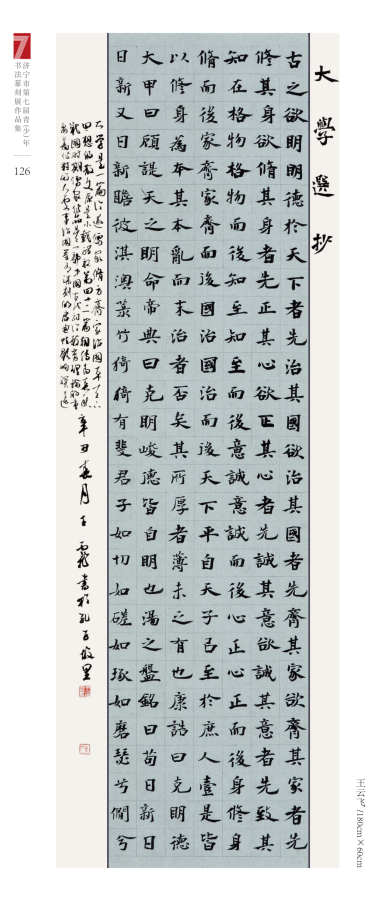 大學選抄
古之欲明明德於天下者先治其國欲治其國者先齊其家欲齊其家者先
修其身欲脩其身者先正其心欲正其心者先誠其意欲誠其意者先致其
知在格物格物而後知至知至而後意誠意誠而後心正心正而後身修身
脩而後家齊家齊而後國治國治而後天下平自天子㠯至於庶人壹是皆
以修身為本其本亂而末治者否矣其所厚者薄未之有也康誥曰克明德
大甲曰顧諟天之明命帝典曰克明峻德皆自明也湯之盤銘曰苟日新日
日新又日新瞻彼淇澳菉竹猗猗有斐君子如切如磋如琢如磨瑟兮僩兮
大学是一篇论述儒家修身齐家治国平天下
思想的散文原是小戴礼记第四十二篇相传为曾子
辛丑春月王云飛書於孔子故里
7
济宁市第七届青(少)年
书法篆刻展作品集
126
王云飞 /180cm×60cm